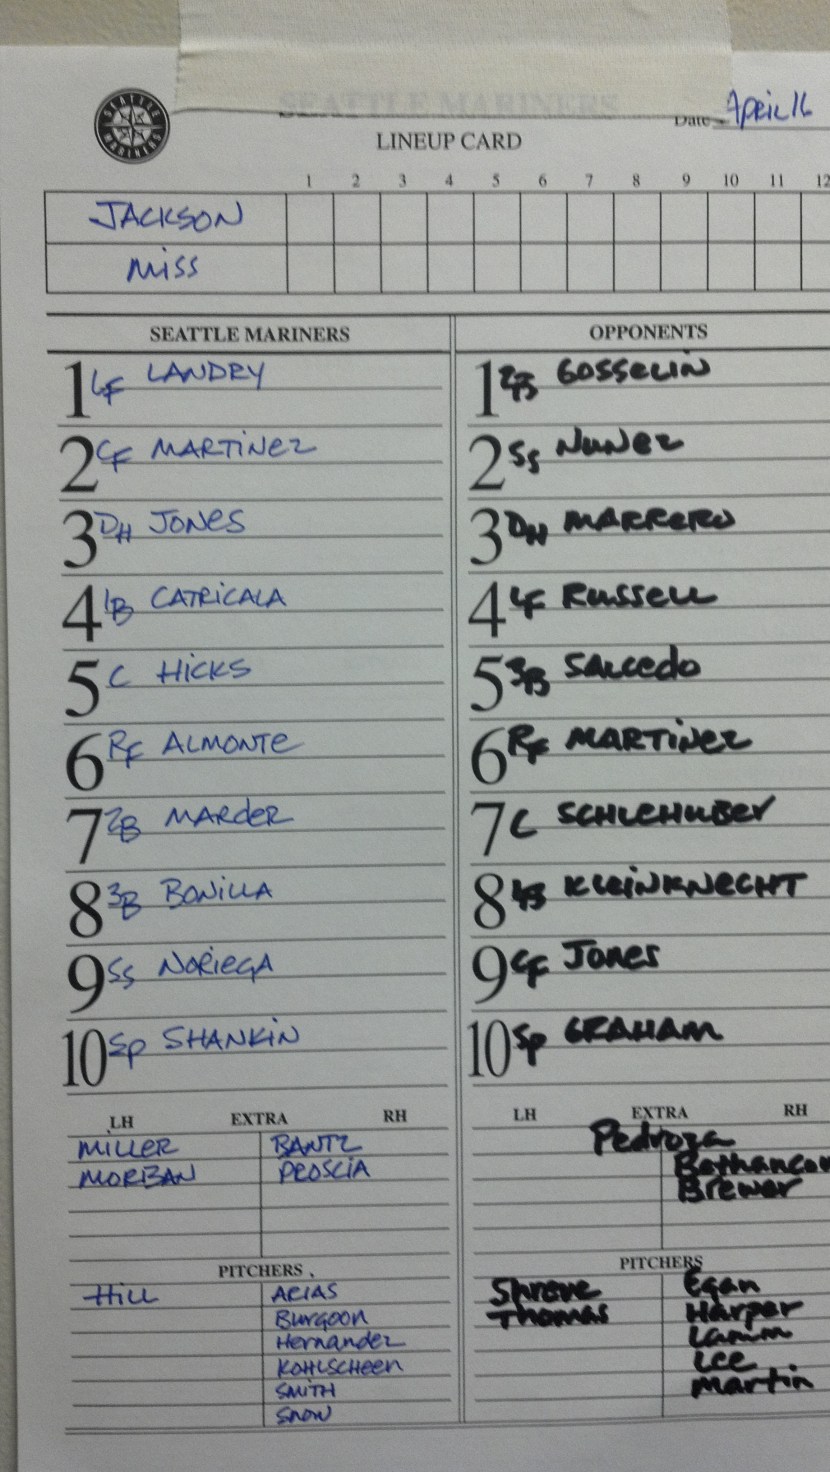 SEATTLE MARINERS
SEATTLE MARINERS
Date April 16
LINEUP CARD
1 2 3 4 5 6 7 8 9 10 11 12
JACKSON
MISS
SEATTLE MARINERS
1 LF LANDRY
2 CF MARTINEZ
3 DH JONES
4 1B CATRICALA
5 C HICKS
6 RF ALMONTE
7 2B MARDER
8 3B BONILLA
9 SS NORIEGA
10 SP SHANKIN
LH EXTRA RH
MILLER BANTZ
MORBAN PROSCIA
PITCHERS
Hill ARIAS
Burgoon
Hernandez
KOHLSCHEEN
SMITH
SNOW
OPPONENTS
1 2B GOSSELIN
2 SS NUNEZ
3 DH MARRERO
4 LF RUSSELL
5 3B SALCEDO
6 RF MARTINEZ
7 C SCHLEHUBER
8 1B KLEINKNECHT
9 CF JONES
10 SP GRAHAM
LH EXTRA RH
Pedroza
Bethancou
Brewer
PITCHERS
Shreve Egan
Thomas Harper
Lamm
Lee
Martin